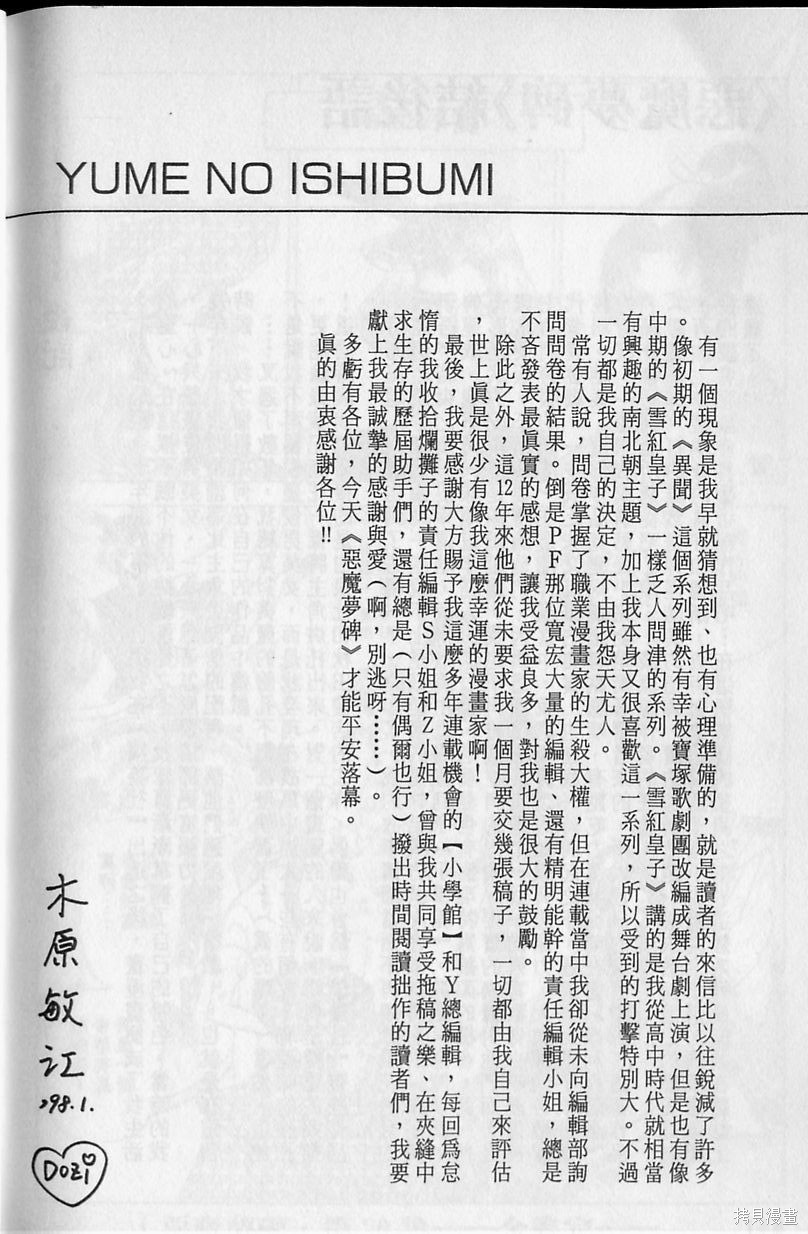 YUME NO ISHIBUMI
有一個現象是我早就猜想到、也有心理準備的，就是讀者的來信比以往銳減了許多
。像初期的《異聞》這個系列雖然有幸被寶塚歌劇團改編成舞台劇上演，但是也有像
中期的《雪紅皇子》一樣乏人問津的系列。《雪紅皇子》講的是我從高中時代就相當
有興趣的南北朝主題，加上我本身又很喜歡這一系列，所以受到的打擊特別大。不過
一切都是我自己的決定，不由我怨天尤人。
常有人說，問卷掌握了職業漫畫家的生殺大權，但在連載當中我卻從未向編輯部詢
問問卷的結果。倒是ＰＦ那位寬宏大量的編輯、還有精明能幹的責任編輯小姐，總是
不吝發表最眞實的感想，讓我受益良多，對我也是很大的鼓勵。
除此之外，這12年來他們從未要求我一個月要交幾張稿子，一切都由我自己來評估
，世上眞是很少有像我這麼幸運的漫畫家啊！
最後，我要感謝大方賜予我這麼多年連載機會的【小學館】和Ｙ總編輯，每回爲怠
惰的我收拾爛攤子的責任編輯Ｓ小姐和Ｚ小姐，曾與我共同享受拖稿之樂、在夾縫中
求生存的歷屆助手們，還有總是（只有偶爾也行）撥出時間閱讀拙作的讀者們，我要
獻上我最誠摯的感謝與愛（啊，別逃呀……）。
多虧有各位，今天《惡魔夢碑》才能平安落幕。
眞的由衷感謝各位!!
木原敏江
'98.1.
DOZi
拷貝漫畫